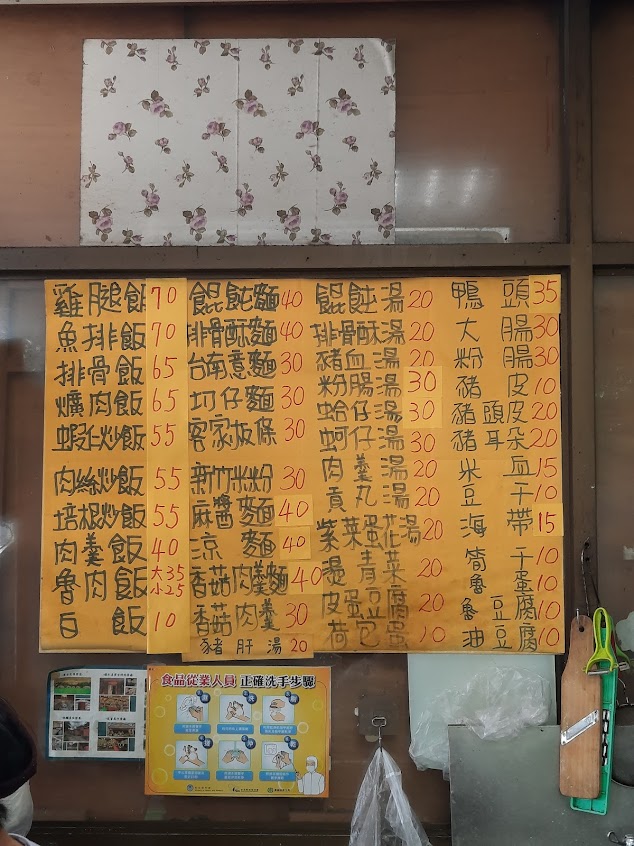 雞腿飯 70
魚排飯 70
排骨飯 65
爌肉飯 65
蝦仁炒飯 55
肉絲炒飯 55
培根炒飯 55
肉羹飯 40
魯肉飯 大35 小25
白飯 10
餛飩麵 40
排骨酥麵 40
台南意麵 30
切仔麵 30
客家板條 30
新竹米粉 30
麻醬麵 40
涼麵 40
香菇肉羹麵 40
香菇肉羹 30
豬肝湯 20
餛飩湯 20
排骨酥湯 20
豬血湯 20
粉腸湯 30
蛤仔湯 30
蚵仔湯 30
肉羹湯 20
貢丸湯 20
紫菜蛋花湯 20
燙青菜 20
皮蛋豆腐 20
荷包蛋 10
鴨頭 35
大腸 30
粉腸 30
豬皮 10
豬頭皮 20
豬耳朵 20
米血 15
豆干 10
海帶 15
筍干 10
魯蛋 10
魯豆腐 10
油豆腐 10
食品從業人員 正確洗手步驟
濕
搓
沖
捧
擦